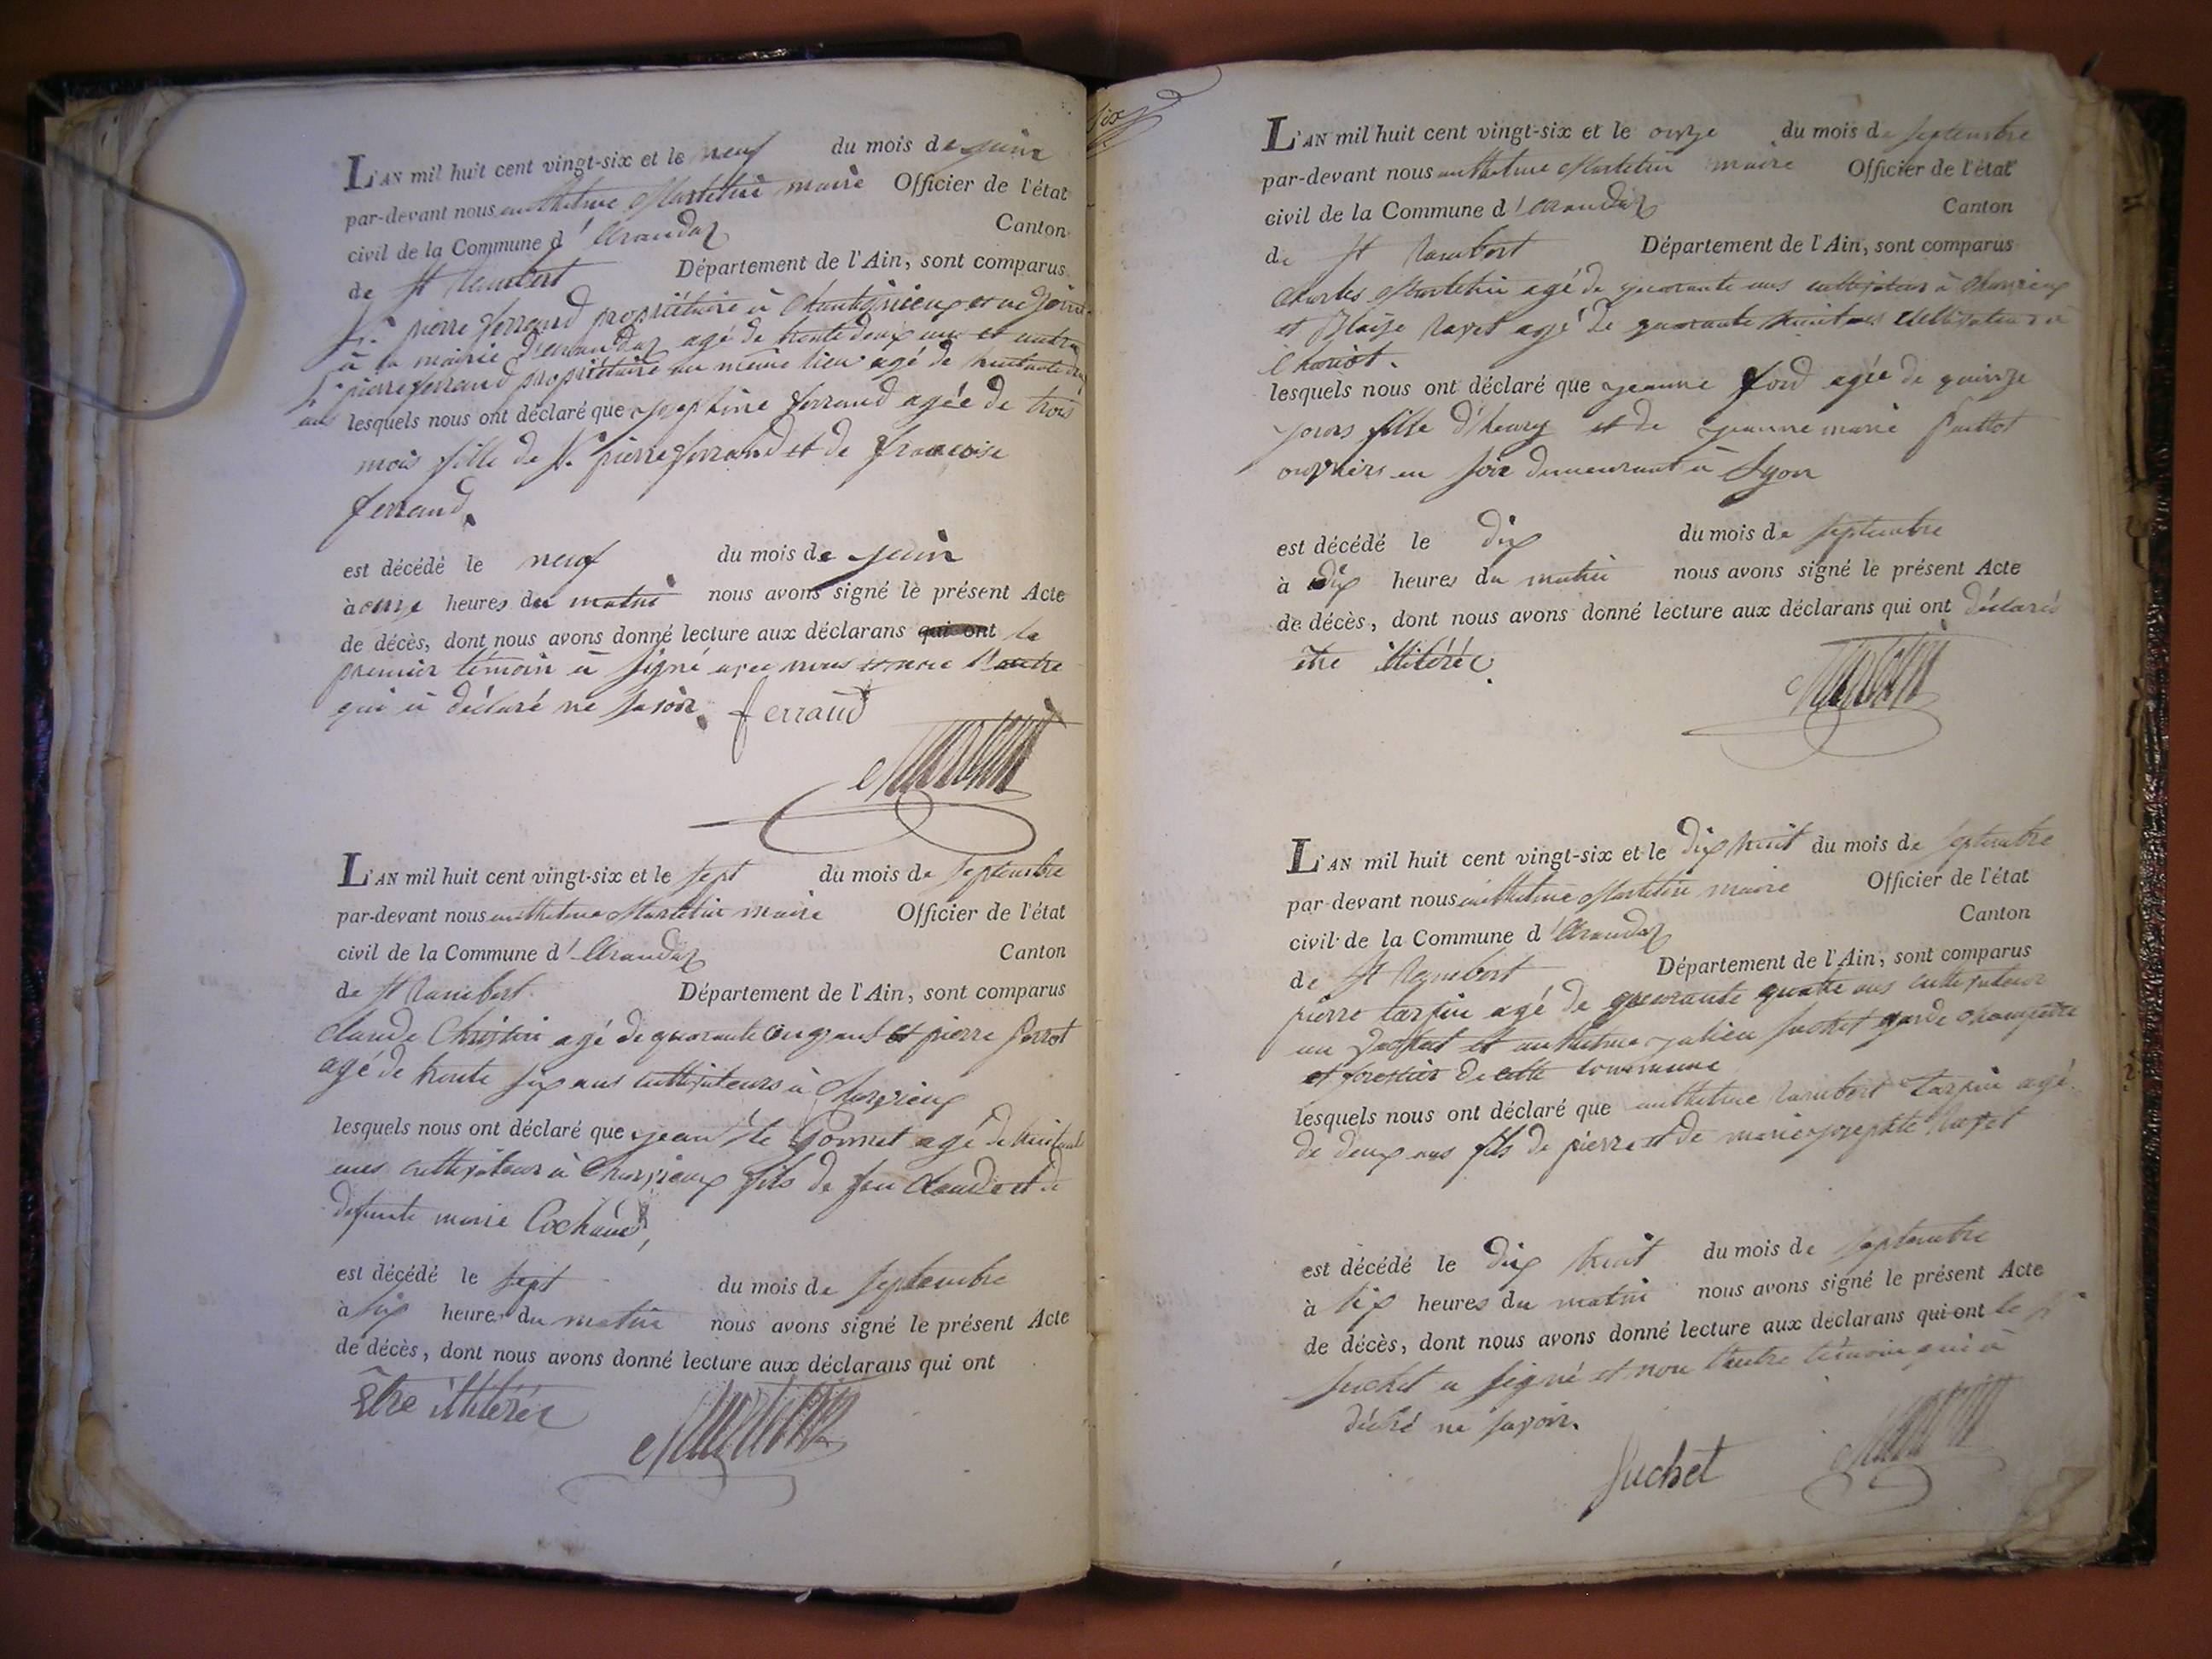 L'AN mil huit cent vingt-six et le neuf du mois de juin
par-devant nous anthelme Martelin maire Officier de l'état
civil de la Commune d'Arandaz Canton
de St Rambert Département de l'Ain, sont comparus
pierre ferrand propriétaire à
à la mairie d'arandaz agé de trente deux ans et autre
pierre ferrand propriétaire au même lieu agé de
ans lesquels nous ont déclaré que josephine ferrand agée de trois
mois fille de pierre ferrand et de francoise
ferrand.
est décédé le neuf du mois de juin
à onze heures du matin nous avons signé le présent Acte
de décès, dont nous avons donné lecture aux déclarans qui ont le
premier témoin à signé avec nous et non l'autre
qui à déclaré ne savoir. ferrand
Martelin
L'AN mil huit cent vingt-six et le sept du mois de septembre
par-devant nous anthelme Martelin maire Officier de l'état
civil de la Commune d'Arandaz Canton
de St Rambert Département de l'Ain, sont comparus
claude Christin agé de quarante cinq ans et pierre
agé de trente six ans cultivateurs à
lesquels nous ont déclaré que jean Bte Gonnet agé de
ans cultivateur à fils de feu claude et de
defunte marie Cochaud,
est décédé le sept du mois de septembre
à six heures du matin nous avons signé le présent Acte
de décès, dont nous avons donné lecture aux déclarans qui ont
être illitérés
Martelin
six
L'AN mil huit cent vingt-six et le onze du mois de septembre
par-devant nous anthelme Martelin maire Officier de l'état
civil de la Commune d'Arandaz Canton
de St Rambert Département de l'Ain, sont comparus
charles Martelin agé de quarante ans cultivateur à
et Blaise ravet agé de quarante huit ans cultivateur à
lesquels nous ont déclaré que jeanne ford agée de quinze
jours fille d'henry et de jeanne marie
ouvriers en soie demeurant à Lyon
est décédé le dix du mois de septembre
à dix heures du matin nous avons signé le présent Acte
de décès, dont nous avons donné lecture aux déclarans qui ont déclaré
être illitérés.
Martelin
L'AN mil huit cent vingt-six et le dix huit du mois de septembre
par-devant nous anthelme Martelin maire Officier de l'état
civil de la Commune d'Arandaz Canton
de St Rambert Département de l'Ain, sont comparus
pierre tarpin agé de quarante quatre ans cultivateur
au et anthelme julien suchet garde champetre
et forestier de cette commune
lesquels nous ont déclaré que anthelme rambert tarpin agé
de deux ans fils de pierre et de marie josephte ravet
est décédé le dix huit du mois de septembre
à six heures du matin nous avons signé le présent Acte
de décès, dont nous avons donné lecture aux déclarans qui ont le
suchet a signé et non l'autre témoin qui à
déclré ne savoir.
Suchet Martelin